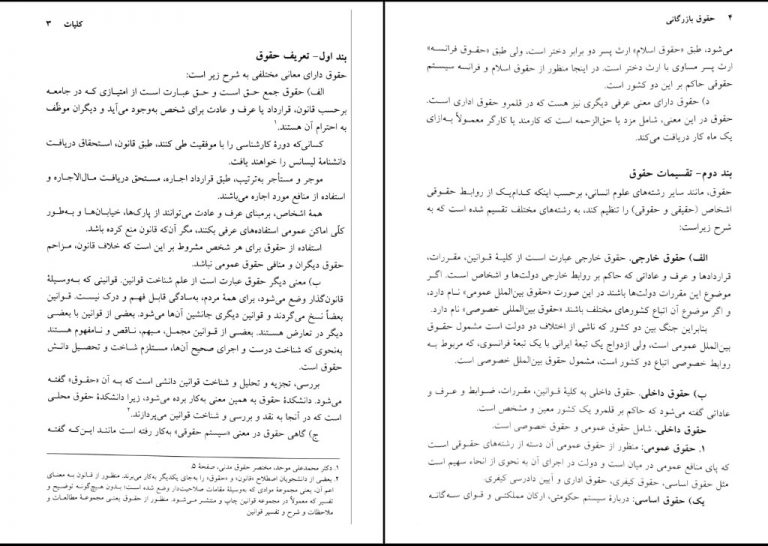 کلیات ۳
بند اول- تعریف حقوق
حقوق دارای معانی مختلفی به شرح زیر است:
الف) حقوق جمع حـق اسـت و حـق عبارت است از امتیازی کـه در جامعه
برحسب قانون، قرارداد یا عرف و عادت برای شخص به‌وجود می‌آید و دیگران موظّف
به احترام آن هستند.۱
کسانی‌که دورهٔ کارشناسی را با موفقیت طی کنند، طبق قانون، استحقاق دریافت
دانشنامهٔ لیسانس را خواهند یافت.
موجر و مستأجر به‌ترتیب، طبق قرارداد اجـاره، مسـتحق دریافـت مـال‌الاجاره و
استفاده از منافع مورد اجاره می‌باشند.
همهٔ اشخاص، برمبنای عرف و عادت می‌توانند از پارک‌ها، خیابـان‌هـا و بـه‌طور
کلّی اماکن عمومی استفاده‌های عرفی بکنند، مگر آن‌که قانون منع کرده باشد.
استفاده از حقوق برای هر شخص مشروط بر این است که خلاف قانون، مزاحم
حقوق دیگران و منافی حقوق عمومی نباشد.
ب) معنی دیگر حقوق عبارت است از علم شناخت قوانین. قوانینی که به‌وسیلهٔ
قانون‌گذار وضع می‌شود، برای همهٔ مردم، به‌سادگی قابـل فهـم و درک نیسـت. قـوانین
بعضاً نسخ می‌گردند و قوانین دیگری جانشین آن‌ها می‌شود. بعضی از قوانین با بعضـی
دیگر در تعارض هستند. بعضـی از قـوانین مجمـل، مبهم، ناقص و نـامفهوم هستند
به‌نحوی که شناخت درست و اجرای صحیح آن‌ها، مستلزم شناخت و تحصیل دانـش
حقوق است.
بررسی، تجزیه و تحلیل و شناخت قوانین دانشی است که به آن «حقوق» گفتـه
می‌شود. دانشکدهٔ حقوق به همین معنی به‌کار برده می‌شود، زیرا دانشکدهٔ حقوق محلـی
است که در آنجا به نقد و بررسی و شناخت قوانین می‌پردازند.۲
ج) گاهی حقوق در معنی «سیستم حقوقی» به‌کار رفته است ماننـد ایـن‌کـه گفتـه
۱. دکتر محمدعلی موحد، مختصر حقوق مدنی، صفحهٔ ۵.
۲. بعضی از دانشجویان اصطلاح «قانون» و «حقوق» را به‌جای یکدیگر به‌کار می‌برند. منظـور از قـانون بـه معنـای
اعم آن، یعنی مجموعهٔ موادی که به‌وسیلهٔ مقامات صلاحیت‌دار وضع شده است؛ بـدون هیچ‌گونـه توضـیح و
تفسیر که معمولاً در مجموعه قوانین چاپ و منتشـر می‌شـود. منظـور از حقـوق یعنـی مجموعـهٔ مطالعـات و
ملاحظات و شرح و تفسیر قوانین
۴ حقوق بازرگانی
می‌شود، طبق «حقوق اسلام» ارث پسر دو برابر دختر است، ولی طبق «حقـوق فرانسـه»
ارث پسر مساوی با ارث دختر است. در اینجا منظور از حقوق اسلام و فرانسه سیستم
حقوقی حاکم بر این دو کشور است.
د) حقوق دارای معنی عرفی دیگری نیز هست که در قلمرو حقوق اداری اسـت.
حقوق در این معنی، شامل مزد یا حق‌الزحمه است که کارمند یا کارگر معمولاً به‌ازای
یک ماه کار دریافت می‌کند.
بند دوم- تقسیمات حقوق
حقوق، مانند سایر رشته‌های علوم انسانی، برحسب اینکه کدام‌یـک از روابـط حقـوقی
اشخاص (حقیقی و حقوقی) را تنظیم کند، به رشته‌های مختلف تقسیم شده است که به
شرح زیراست:
الف) حقوق خارجی. حقوق خارجی عبارت است از کلیـهٔ قـوانین، مقـررات،
قراردادها و عرف و عاداتی که حاکم بر روابط خارجی دولت‌ها و اشخاص است. اگـر
موضوع این مقررات دولت‌ها باشند در این صورت «حقوق بین‌الملل عمومی» نـام دارد،
و اگر موضوع آن اتباع کشورهای مختلف باشند «حقوق بین‌المللی خصوصی» نام دارد.
بنابراین جنگ بین دو کشور که ناشی از اختلاف دو دولت است مشمول حقـوق
بین‌الملل عمومی است، ولی ازدواج یک تبعهٔ ایرانی با یک تبعهٔ فرانسوی، که مربوط به
روابط خصوصی اتباع دو کشور است، مشمول حقوق بین‌الملل خصوصی است.
ب) حقوق داخلی. حقوق داخلی به کلیهٔ قـوانین، مقـررات، ضـوابط و عـرف و
عاداتی گفته می‌شود که حاکم بر قلمرو یک کشور معین و مشخص است.
حقوق داخلی. شامل حقوق عمومی و حقوق خصوصی است.
۱. حقوق عمومی: منظور از حقوق عمومی آن دسته از رشته‌های حقـوقی اسـت
که پای منافع عمومی در میان است و دولت در اجرای آن به نحوی از انحاء سهیم است
مثل حقوق اساسی، حقوق کیفری، حقوق اداری و آیین دادرسی کیفری.
یـک) حقوق اساسی: دربارهٔ سیستم حکومتی، ارکان مملکتـی و قـوای سـه‌گانـه